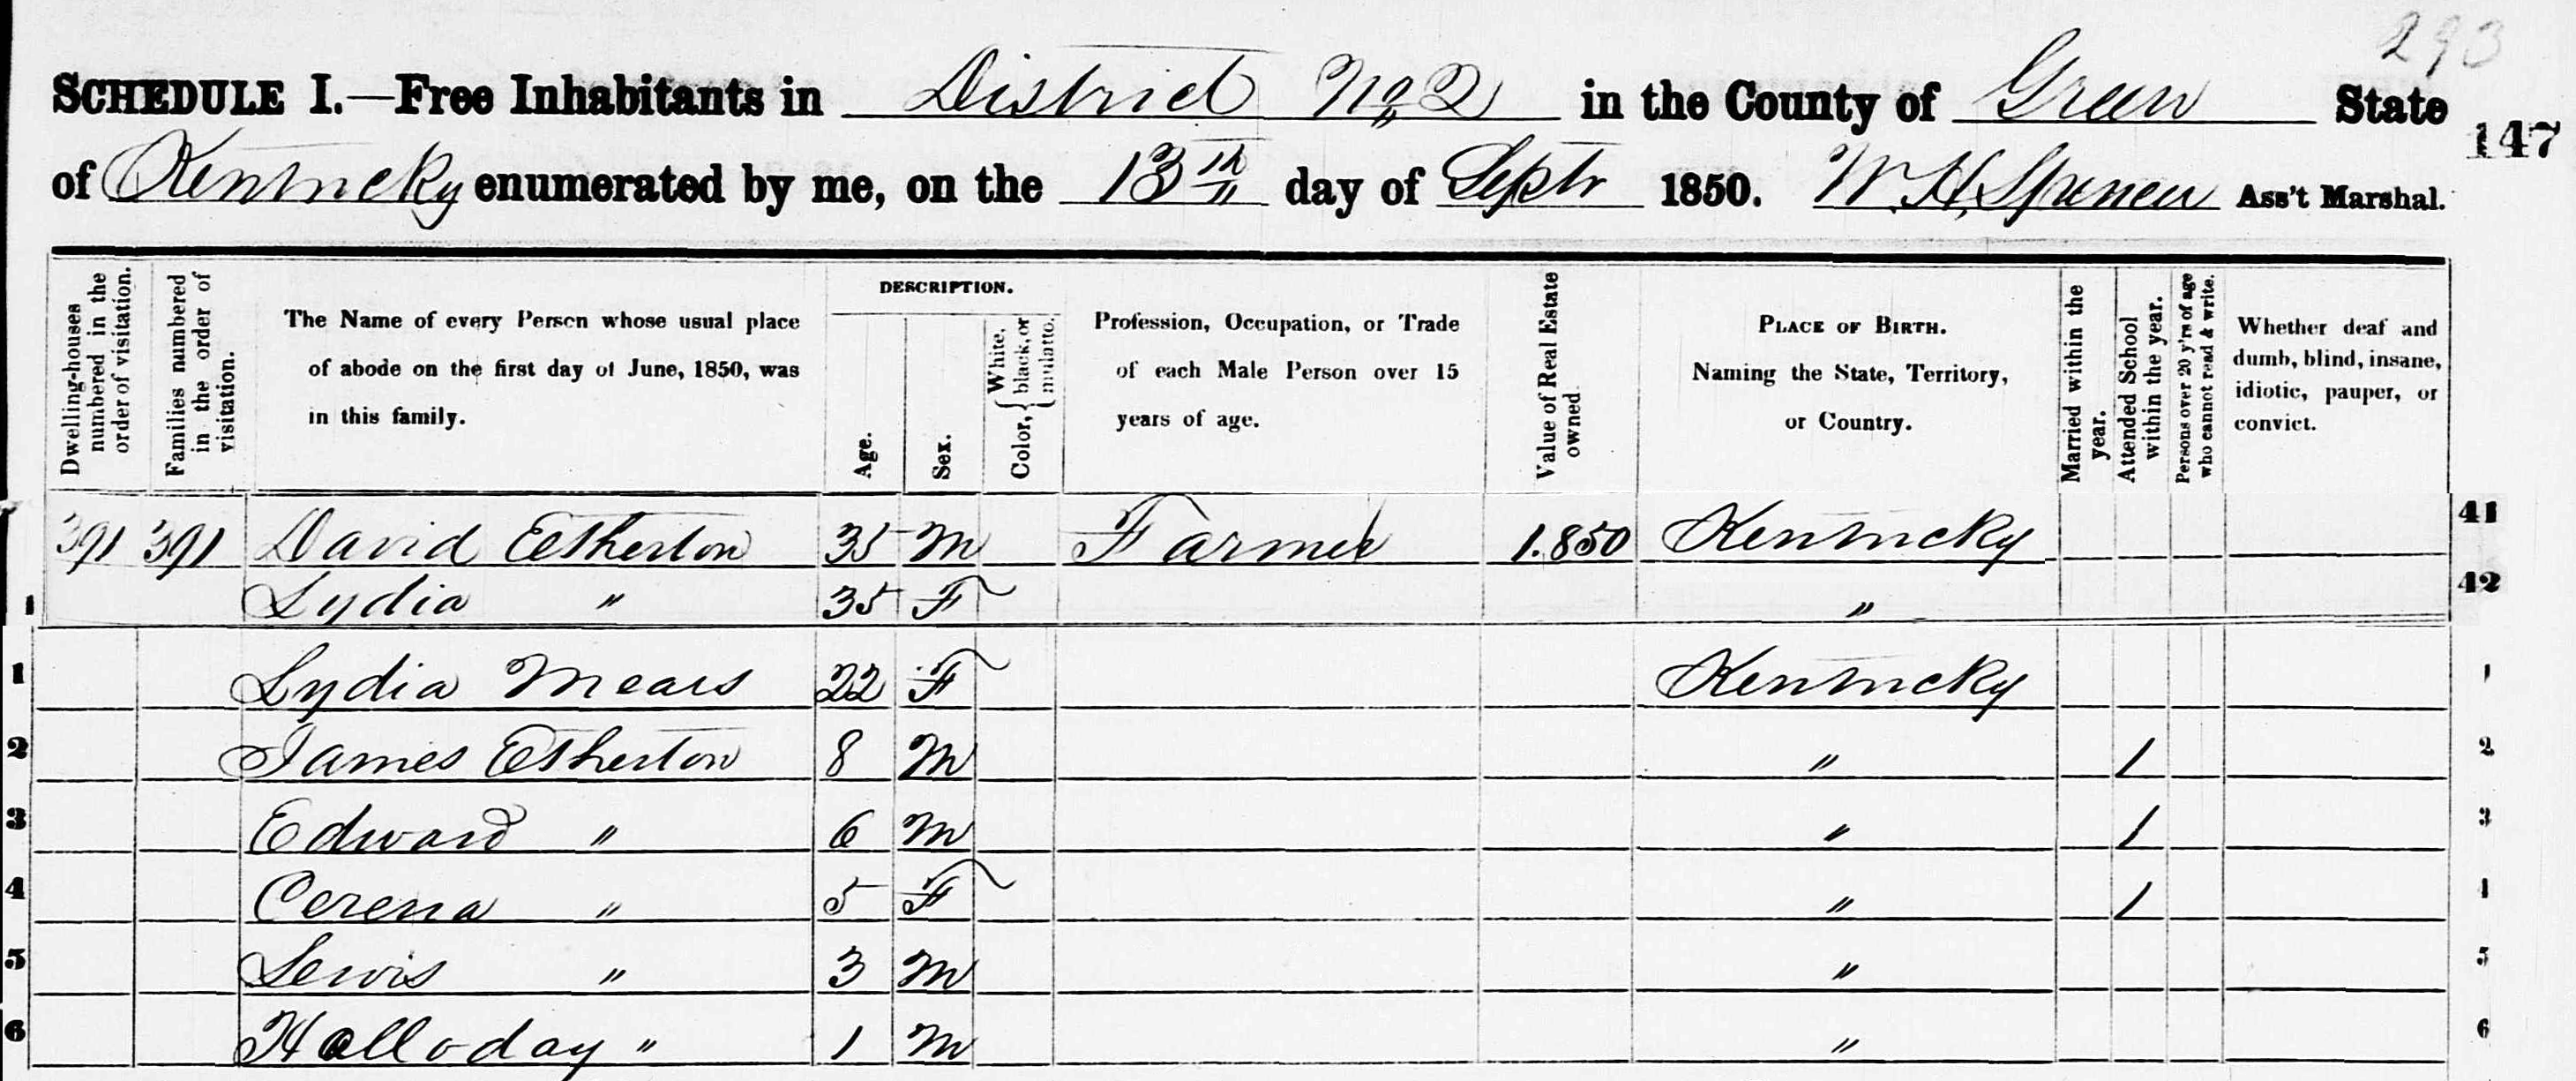 293
SCHEDULE I.—Free Inhabitants in District No 2 in the County of Green State
147
of Kentucky enumerated by me, on the 13th day of Septr 1850. W. H. Spencer Ass't Marshal.
Dwelling-houses numbered in the order of visitation.
Families numbered in the order of visitation.
The Name of every Person whose usual place
of abode on the first day of June, 1850, was
in this family.
DESCRIPTION.
Age.
Sex.
Color, { White, black, or mulatto.
Profession, Occupation, or Trade
of each Male Person over 15
years of age.
Value of Real Estate owned.
PLACE OF BIRTH.
Naming the State, Territory,
or Country.
Married within the year.
Attended School within the year.
Persons over 20 y'rs of age who cannot read & write.
Whether deaf and
dumb, blind, insane,
idiotic, pauper, or
convict.
391 391 David Etherton 35 M Farmer 1.850 Kentucky 41
Lydia " 35 F " 42
1 Lydia Mears 22 F Kentucky 1
2 James Etherton 8 M " 1 2
3 Edward " 6 M " 1 3
4 Cerena " 5 F " 1 4
5 Lewis " 3 M " 5
6 Holloday " 1 M " 6